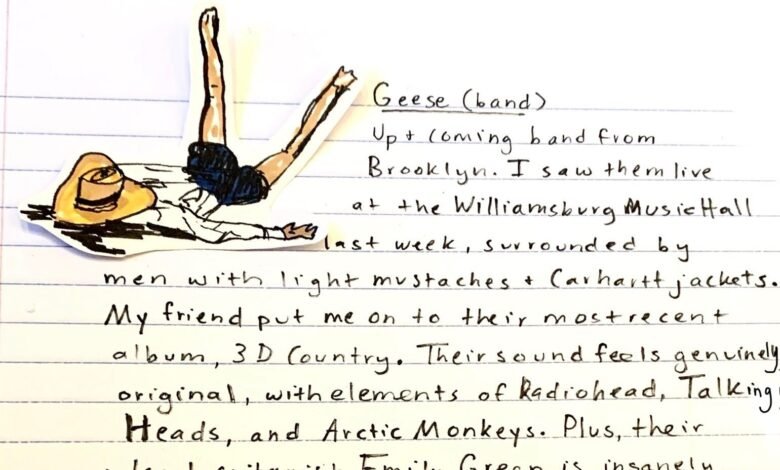 Geese (band)
Up + coming band from
Brooklyn. I saw them live
at the Williamsburg Music Hall
last week, surrounded by
men with light mustaches + Carhartt jackets.
My friend put me on to their most recent
album, 3D Country. Their sound feels genuinely
original, with elements of Radiohead, Talking
Heads, and Arctic Monkeys. Plus, their
lead guitarist Emily Green is insanely